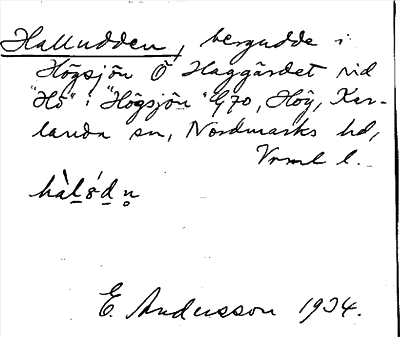 Halludden, bergudde i
Högsjön Ö Haggärdet vid
"Hö" i "Högsjön" G70, Höy, Kar-
landa sn, Nordmarks hd,
Vrml l.
hàl8́dn
E. Andersson 1934.